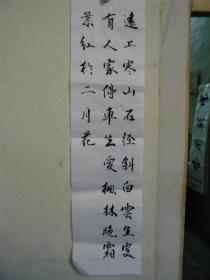 遠上寒山石径斜白雲生處
有人家停車坐愛楓林晚霜
葉红於二月花